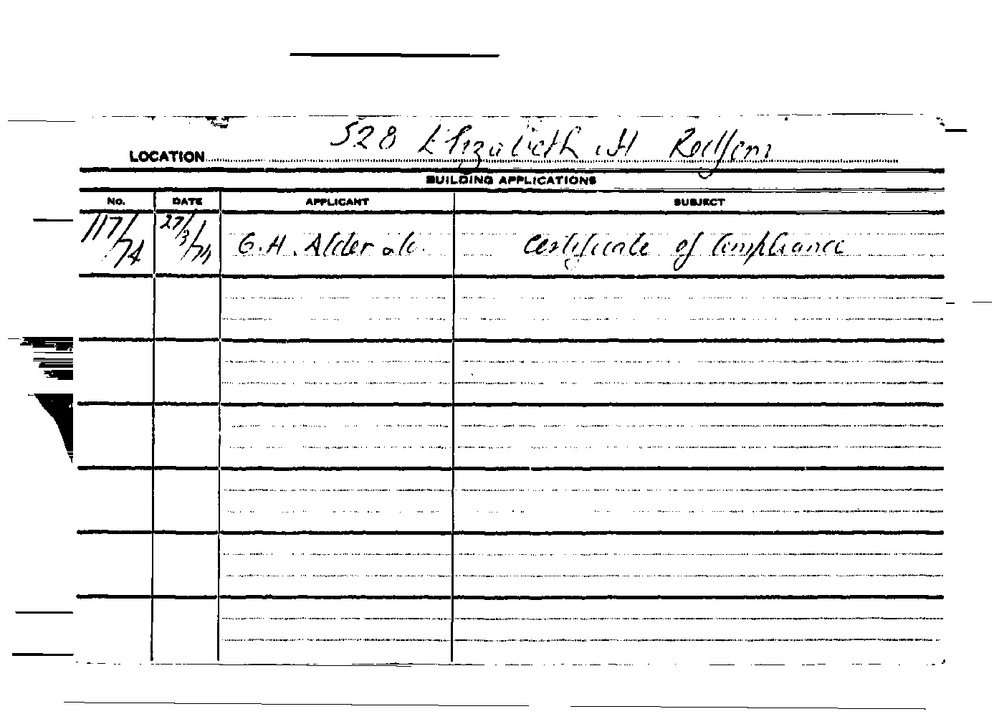 LOCATION 528 Elizabeth St Redfern
BUILDING APPLICATIONS
No. DATE APPLICANT SUBJECT
117/74 27/3/74 G.H. Alder Certificate of Compliance